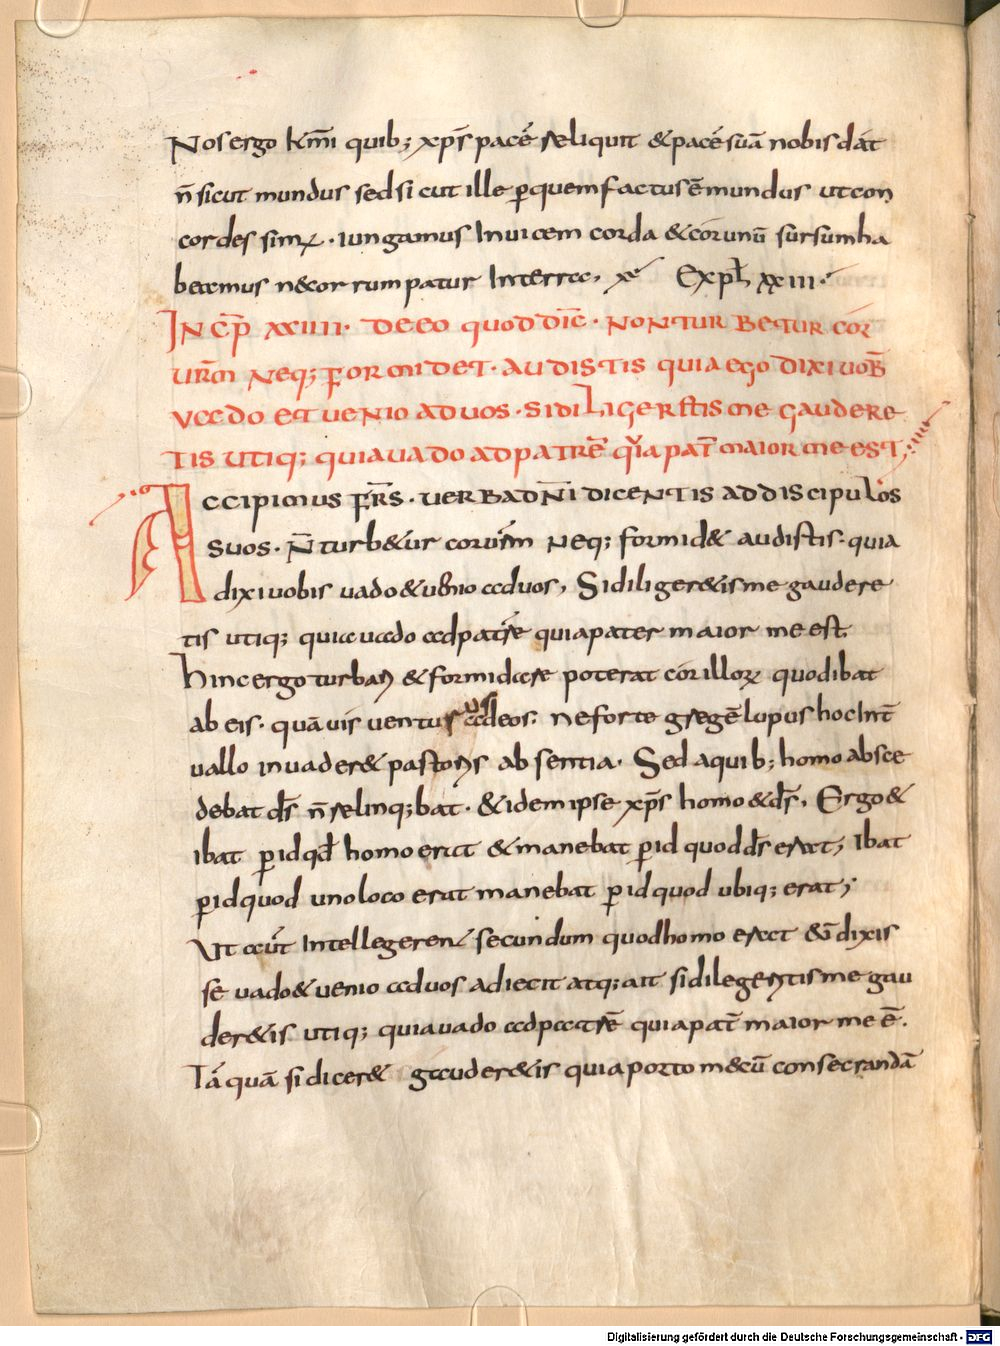 Nos ergo kmī quib; xp̄s pacē reliquit & pacē suā nobis dat
n̄ sicut mundus sed sicut ille p̲ quem factus ē mundus ut con
cordes simꝰ · iungamus Inuicem corda & cor unū sursum ha
beamus ne cor rumpatur Interra, Expl̄ xxiii ·
INCP̄ XXIIII · DE EO QUOD DIC̄ · NON TURBETUR COR
UR̄M NEQ; FORMIDET · AUDISTIS QUIA EGO DIXI UOB̄
UADO ET UENIO AD UOS · SI DILIGERETIS ME GAUDERE
TIS UTIQ; QUIA UADO AD PATRĒ QUIA PAT̄ MAIOR ME EST;
ACCIPIMUS FR̄S · UERBA DN̄I DICENTIS AD DISCIPULOS
SUOS · N̄ turb&ur cor ur̄m Neq; formid& audistis · quia
dixi uobis uado & uenio ad uos, Si diliger&is me gaudere
tis utiq; quia uado ad patrē quia pater maior me est.
hinc ergo turbari & formidare poterat cor illoꝝ quod ibat
ab eis · quāuis venturus ad eos; ne forte gregē lupus hoc Int̄
uallo inuader& pastoris absentia · Sed a quib; homo absce
debat d̄s n̄ relinq;bat · & idem ipse xp̄s homo & d̄s, Ergo &
Ibat p̲ id qd̄ homo erat & manebat p̲ id quod d̄s erat; Ibat
p̲ id quod uno loco erat manebat p̲ id quod ubiq; erat;
Ut aūt Intellegeren̄ secundum quod homo erat eū dixis
se uado & uenio ad uos adiecit atq; ait si dilegeritis me gau
der&is utiq; quia uado ad patrē quia pat̄ maior me ē.
Tāquā si dicer& gauder&is quia porto mecū consecrandā
Digitalisierung gefördert durch die Deutsche Forschungsgemeinschaft - DFG